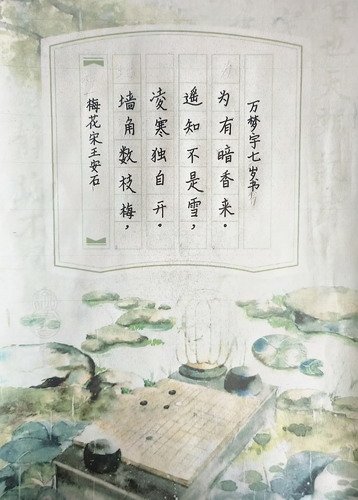 梅花宋王安石
墙角数枝梅，
凌寒独自开。
遥知不是雪，
为有暗香来。
万梦宇七岁书